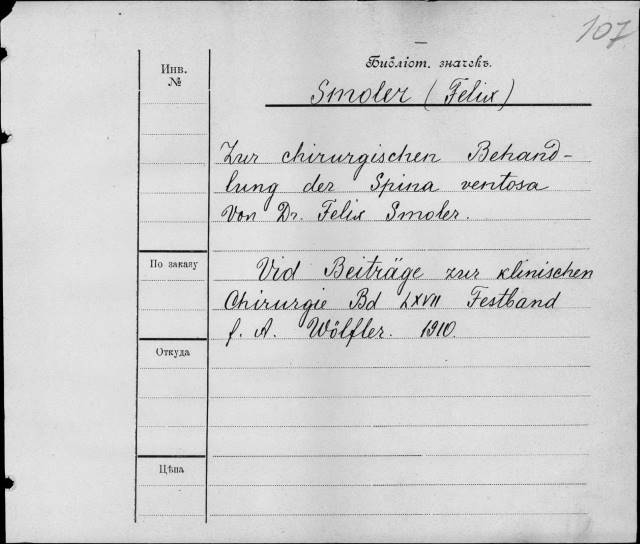 107
Инв.
№
Библіот. значекъ.
Smoler (Felix)
Zur chirurgischen Behand-
lung der Spina ventosa
von Dr. Felix Smoler.
По заказу
Vid Beiträge zur klinischen
Chirurgie Bd LXVII Festband
f. A. Wölfler. 1910.
Откуда
Цѣна